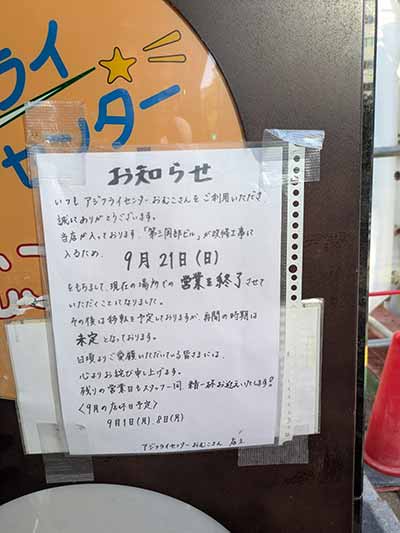 ライ
センター
お知らせ
いつも アジフライセンターおむこさんをご利用いただき
誠にありがとうございます。
当店が入っております、「第三岡部ビル」が改修工事に
入るため、
9月21日(日)
をもちまして、現在の場所での 営業を終了させて
いただくことになりました。
その後は移転を予定しておりますが、再開の時期は
未定となっております。
日頃よりご愛顧いただいている皆さまには、
心よりお詫び申し上げます。
残りの営業日もスタッフ一同、精一杯お迎えいたします!!
〈9月の店休日予定〉
9月1日(月)、8日(月)
アジフライセンターおむこさん 店主